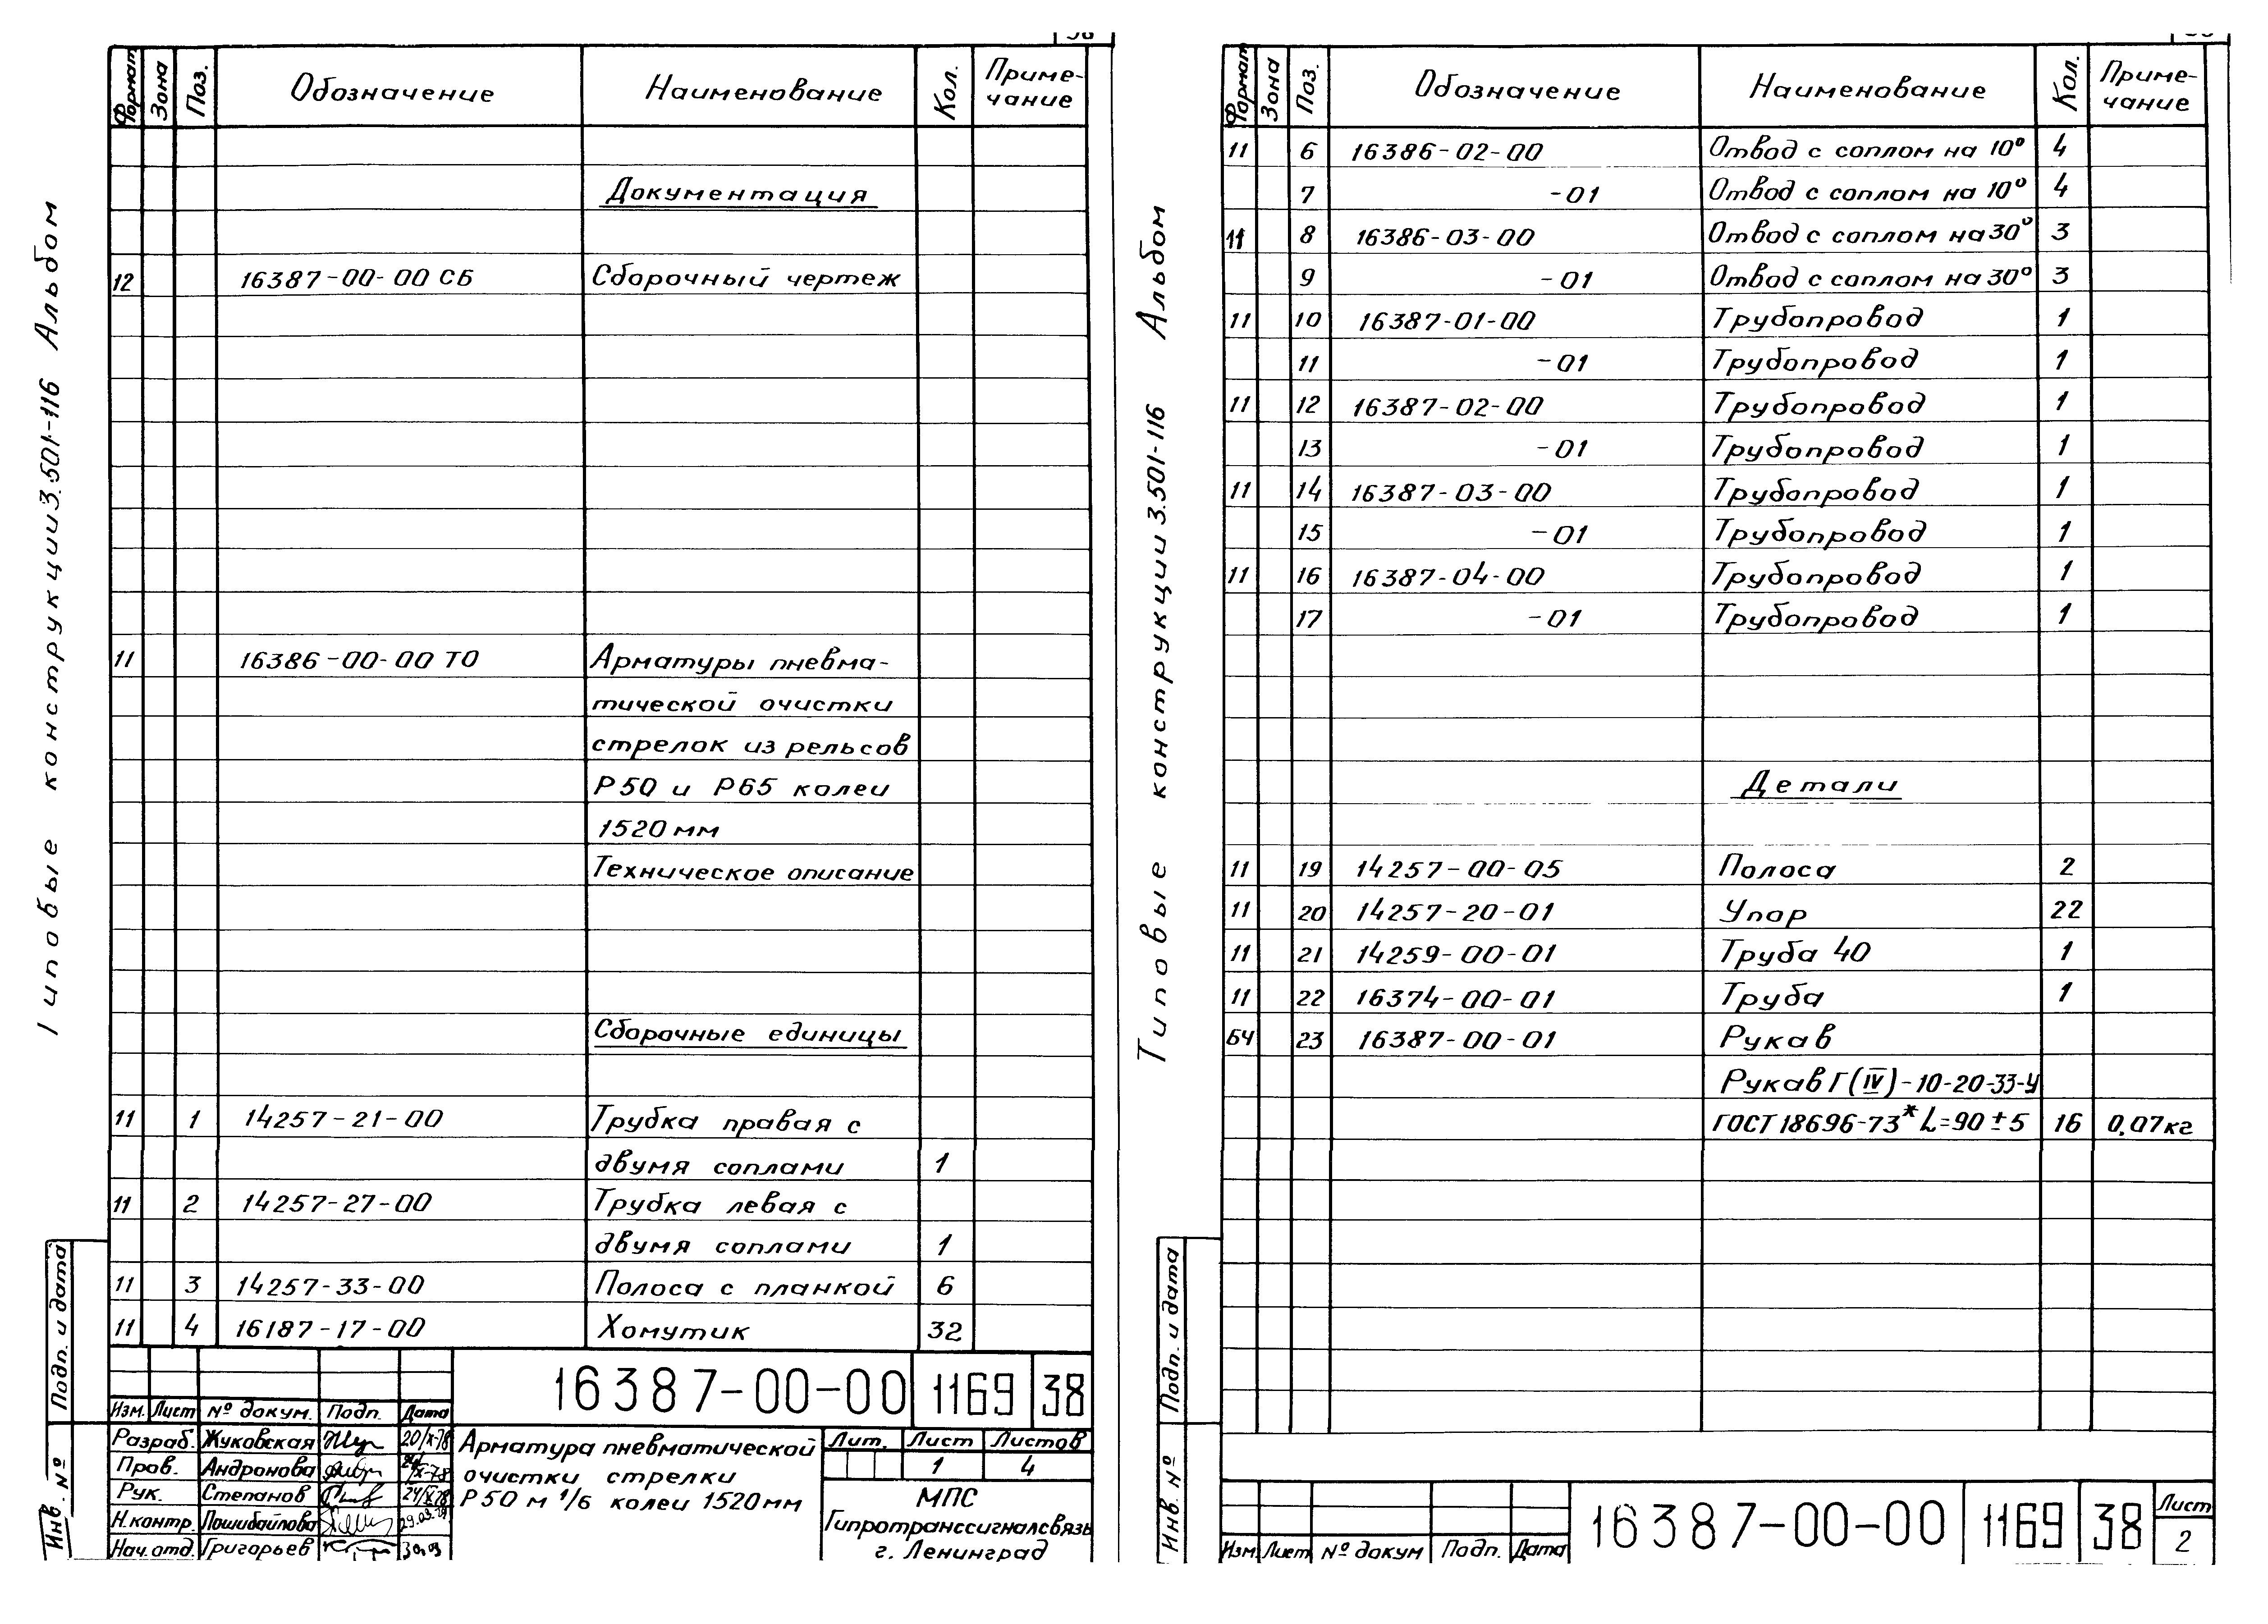 Типовые конструкции 3.501-116 Альбом
Формат Зона Поз. Обозначение Наименование Кол. Приме-
чание
Документация
12 16387-00-00 СБ Сборочный чертеж
11 16386-00-00 ТО Арматуры пневма-
тической очистки
стрелок из рельсов
Р50 и Р65 колеи
1520 мм
Техническое описание
Сборочные единицы
11 1 14257-21-00 Трубка правая с
двумя соплами 1
11 2 14257-27-00 Трубка левая с
двумя соплами 1
11 3 14257-33-00 Полоса с планкой 6
11 4 16187-17-00 Хомутик 32
Подп. и дата
Инв. №
16387-00-00 1169 38
Изм. Лист № докум. Подп. Дата
Разраб. Жуковская 20/X-78
Пров. Андронова
Рук. Степанов
Н.контр. Пошибайлова
Нач.отд. Григорьев
Арматура пневматической
очистки стрелки
Р50 м 1/6 колеи 1520мм
Лит. Лист Листов
1 4
МПС
Гипротранссигналсвязь
г. Ленинград
Типовые конструкции 3.501-116 Альбом
Формат Зона Поз. Обозначение Наименование Кол. Приме-
чание
11 6 16386-02-00 Отвод с соплом на 10° 4
7 -01 Отвод с соплом на 10° 4
11 8 16386-03-00 Отвод с соплом на 30° 3
9 -01 Отвод с соплом на 30° 3
11 10 16387-01-00 Трубопровод 1
11 -01 Трубопровод 1
11 12 16387-02-00 Трубопровод 1
13 -01 Трубопровод 1
11 14 16387-03-00 Трубопровод 1
15 -01 Трубопровод 1
11 16 16387-04-00 Трубопровод 1
17 -01 Трубопровод 1
Детали
11 19 14257-00-05 Полоса 2
11 20 14257-20-01 Упор 22
11 21 14259-00-01 Труба 40 1
11 22 16374-00-01 Труба 1
БЧ 23 16387-00-01 Рукав
Рукав Г(IV)-10-20-33-У
ГОСТ 18696-73* L=90±5 16 0,07кг
Подп. и дата
Инв. №
Изм. Лист № докум Подп. Дата
16387-00-00 1169 38 Лист
2